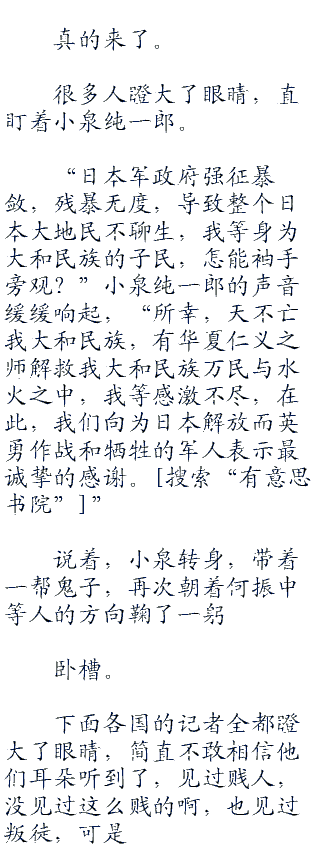 真的来了。
很多人瞪大了眼睛，直
盯着小泉纯一郎。
“日本军政府强征暴
敛，残暴无度，导致整个日
本大地民不聊生，我等身为
大和民族的子民，怎能袖手
旁观？”小泉纯一郎的声音
缓缓响起，“所幸，天不亡
我大和民族，有华夏仁义之
师解救我大和民族万民与水
火之中，我等感激不尽，在
此，我们向为日本解放而英
勇作战和牺牲的军人表示最
诚挚的感谢。[搜索“有意思
书院”]”
说着，小泉转身，带着
一帮鬼子，再次朝着何振中
等人的方向鞠了一躬
卧槽。
下面各国的记者全都瞪
大了眼睛，简直不敢相信他
们耳朵听到了，见过贱人，
没见过这么贱的啊，也见过
叛徒，可是